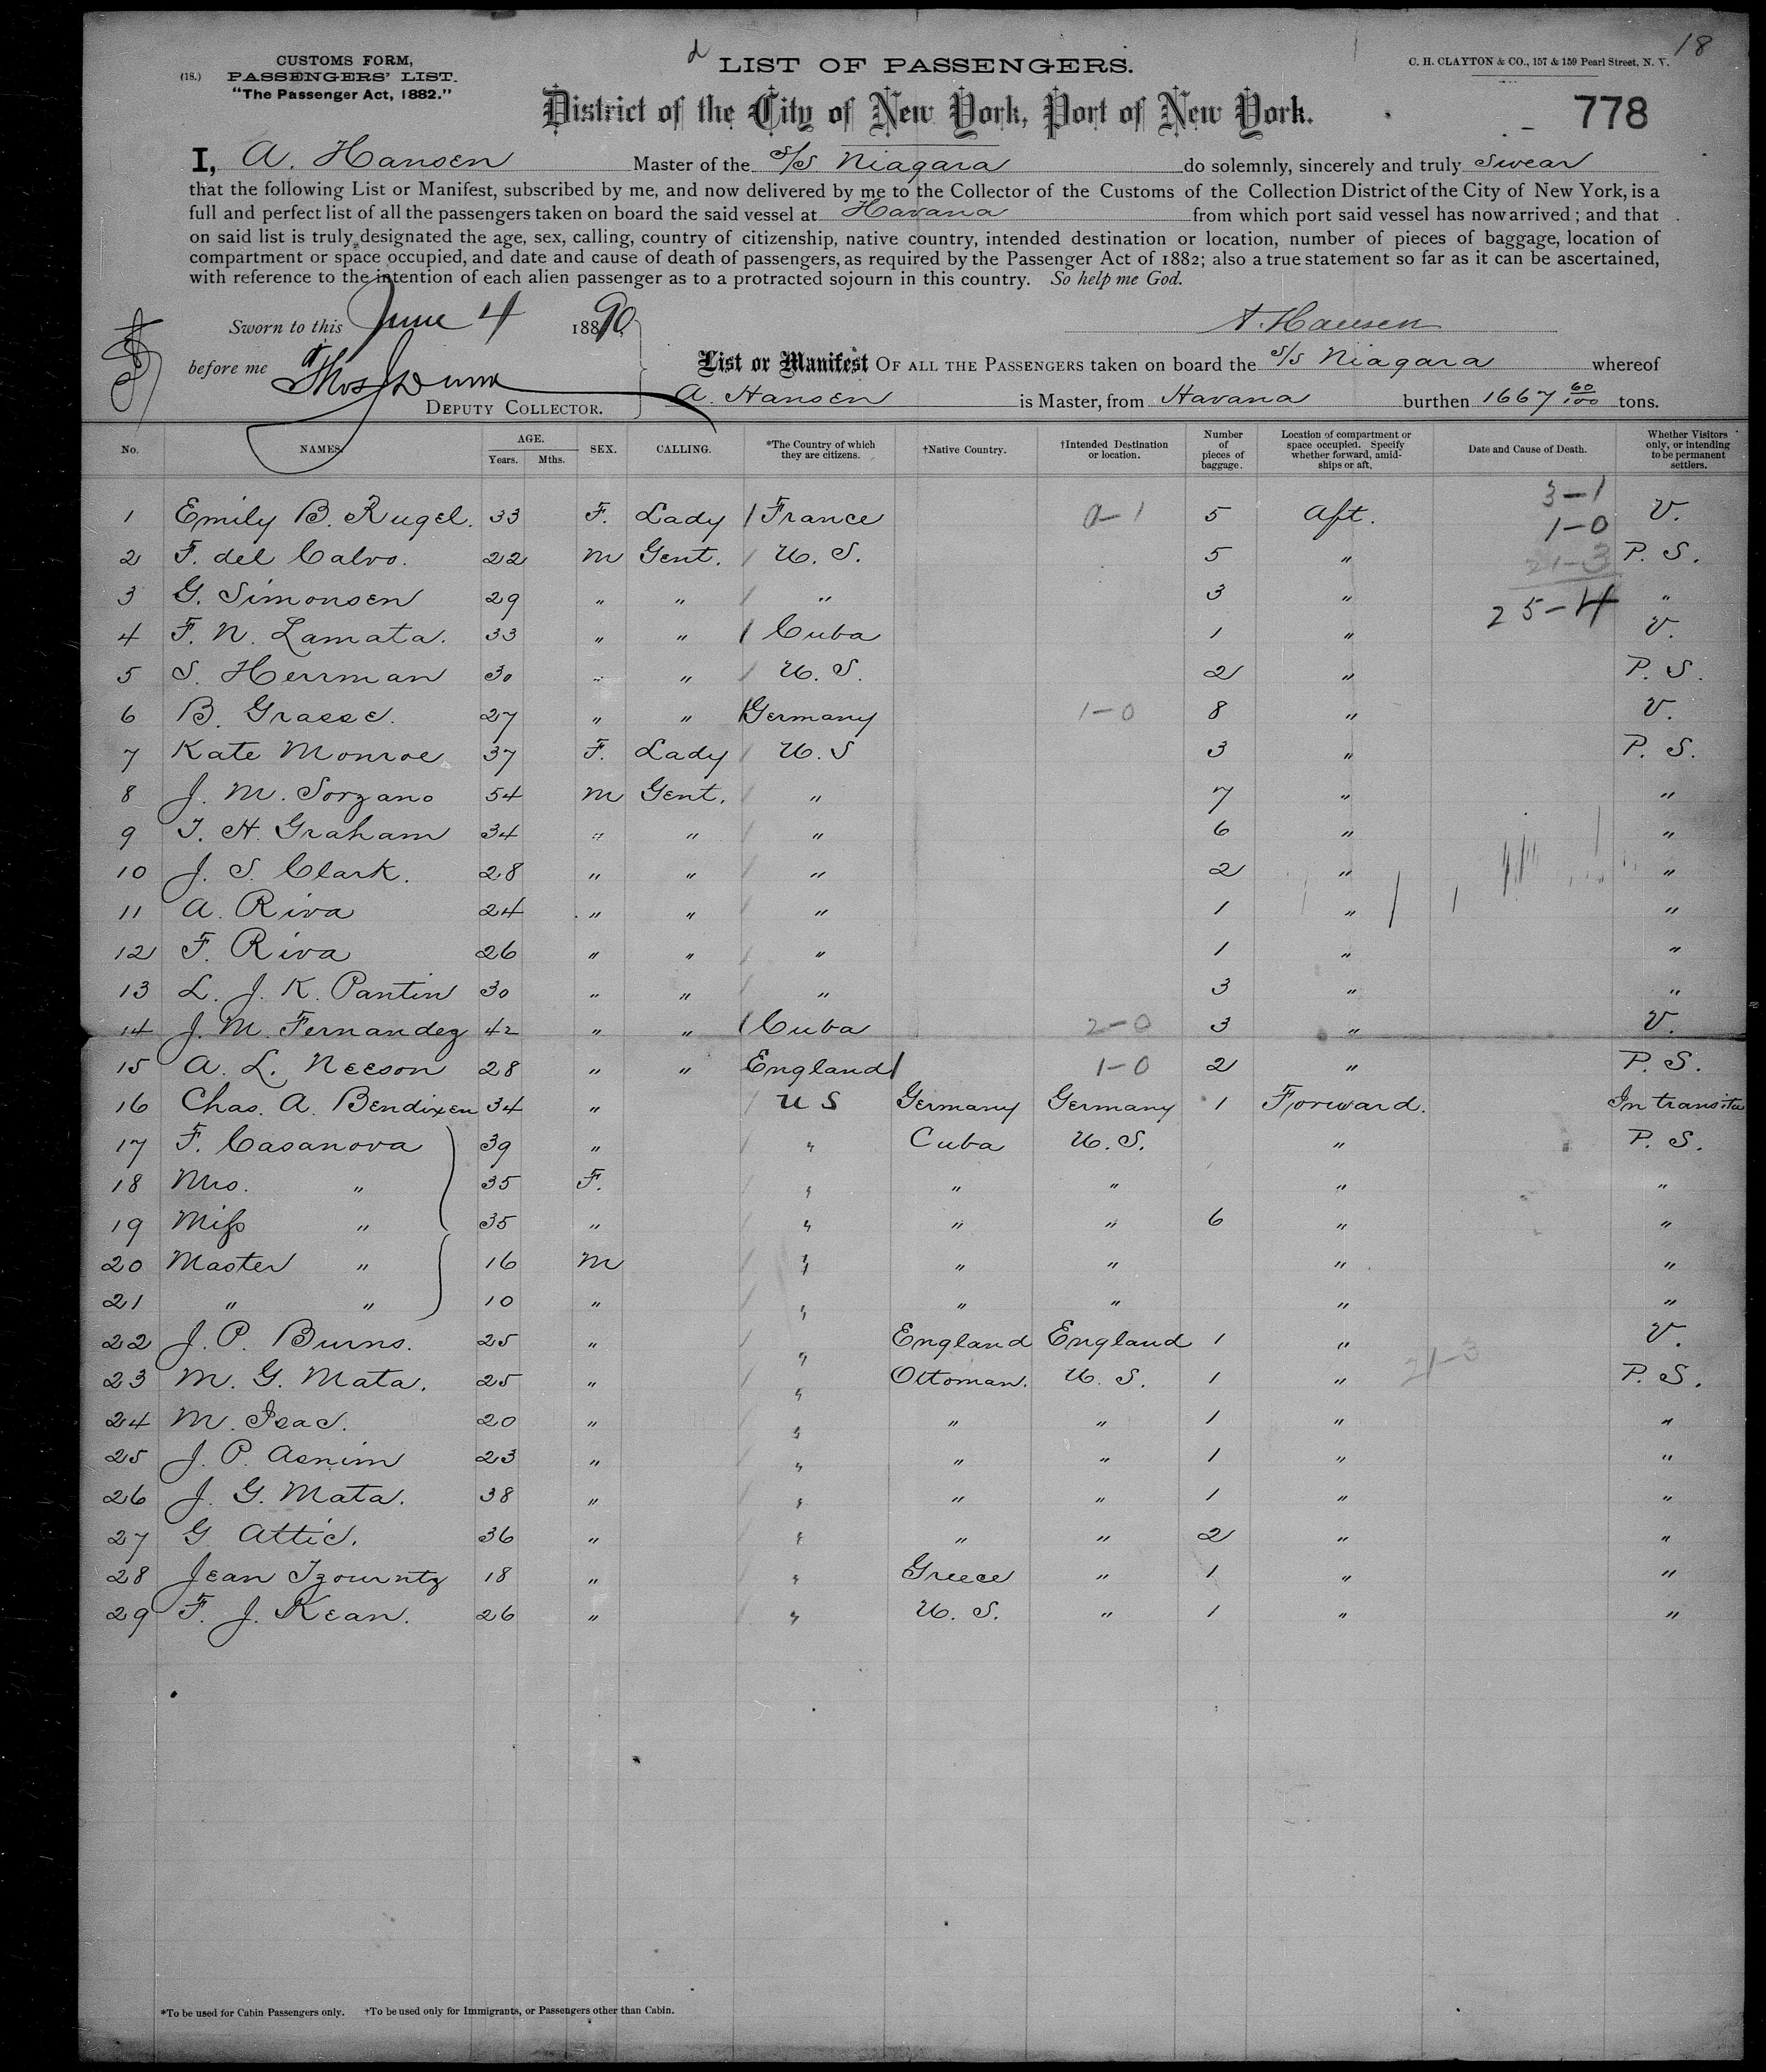 18
CUSTOMS FORM,
(18.) PASSENGERS' LIST.
"The Passenger Act, 1882."
LIST OF PASSENGERS.
C. H. CLAYTON & CO., 157 & 159 Pearl Street, N. Y.
District of the City of New York, Port of New York.
778
I, A. Hansen Master of the S/S Niagara do solemnly, sincerely and truly swear
that the following List or Manifest, subscribed by me, and now delivered by me to the Collector of the Customs of the Collection District of the City of New York, is a
full and perfect list of all the passengers taken on board the said vessel at Havana from which port said vessel has now arrived; and that
on said list is truly designated the age, sex, calling, country of citizenship, native country, intended destination or location, number of pieces of baggage, location of
compartment or space occupied, and date and cause of death of passengers, as required by the Passenger Act of 1882; also a true statement so far as it can be ascertained,
with reference to the intention of each alien passenger as to a protracted sojourn in this country. So help me God.
Sworn to this June 4 1890
A. Hansen
before me Thos J Dunn
DEPUTY COLLECTOR.
List or Manifest OF ALL THE PASSENGERS taken on board the S/S Niagara whereof
A. Hansen is Master, from Havana burthen 1667 60/100 tons.
No. NAMES. AGE. Years. Mths. SEX. CALLING. *The Country of which they are citizens. †Native Country. †Intended Destination or location. Number of pieces of baggage. Location of compartment or space occupied. Specify whether forward, amidships or aft. Date and Cause of Death. Whether Visitors only, or intending to be permanent settlers.
1 Emily B. Rugel. 33 F. Lady France 0-1 5 Aft. 3-1 V.
1-0
2 F. del Calvo. 22 M Gent. U. S. 5 " 21-3 P. S.
3 G. Simonsen 29 " " " 3 " 25-4 "
4 F. N. Lamata. 33 " " Cuba 1 " V.
5 S. Herrman 30 " " U. S. 2 " P. S.
6 B. Grasse. 27 " " Germany 1-0 8 " V.
7 Kate Monroe 37 F. Lady U. S 3 " P. S.
8 J. M. Sorzano 54 M Gent. " 7 " "
9 T. H. Graham 34 " " " 6 " "
10 J. S. Clark. 28 " " " 2 " "
11 A. Riva 24 " " " 1 " "
12 F. Riva 26 " " " 1 " "
13 L. J. K. Pantin 30 " " " 3 " "
14 J. M. Fernandez 42 " " Cuba 2-0 3 " V.
15 A. L. Neeson 28 " " England 1-0 2 " P. S.
16 Chas. A. Bendixen 34 " U S Germany Germany 1 Forward. In transitu
17 F. Casanova 39 " " Cuba U. S. " P. S.
18 Mrs. " 35 F. " " " " "
19 Miss " 35 " " " " 6 " "
20 Master " 16 M " " " " "
21 " " 10 " " " " " "
22 J. P. Burns. 25 " " England England 1 " V.
23 M. G. Mata. 25 " " Ottoman. U. S. 1 " 21-3 P. S.
24 M. Isac. 20 " " " " 1 " "
25 J. P. Asnim 23 " " " " 1 " "
26 J. G. Mata. 38 " " " " 1 " "
27 G Attic. 36 " " " " 2 " "
28 Jean 18 " " Greece " 1 " "
29 F. J. Kean. 26 " " U. S. " 1 " "
*To be used for Cabin Passengers only. †To be used only for Immigrants, or Passengers other than Cabin.